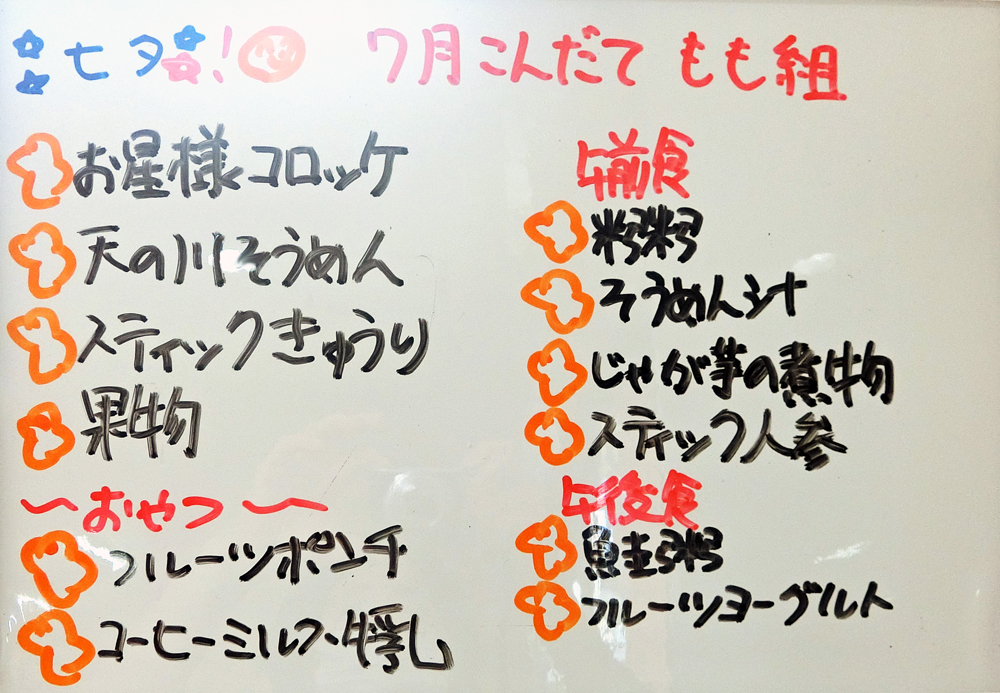 七夕! 7月こんだて もも組
お星様コロッケ
天の川そうめん
スティックきゅうり
果物
〜おやつ〜
フルーツポンチ
コーヒーミルク・牛乳
午前食
そうめん汁
じゃが芋の煮物
スティック人参
午後食
鮭粥
フルーツヨーグルト